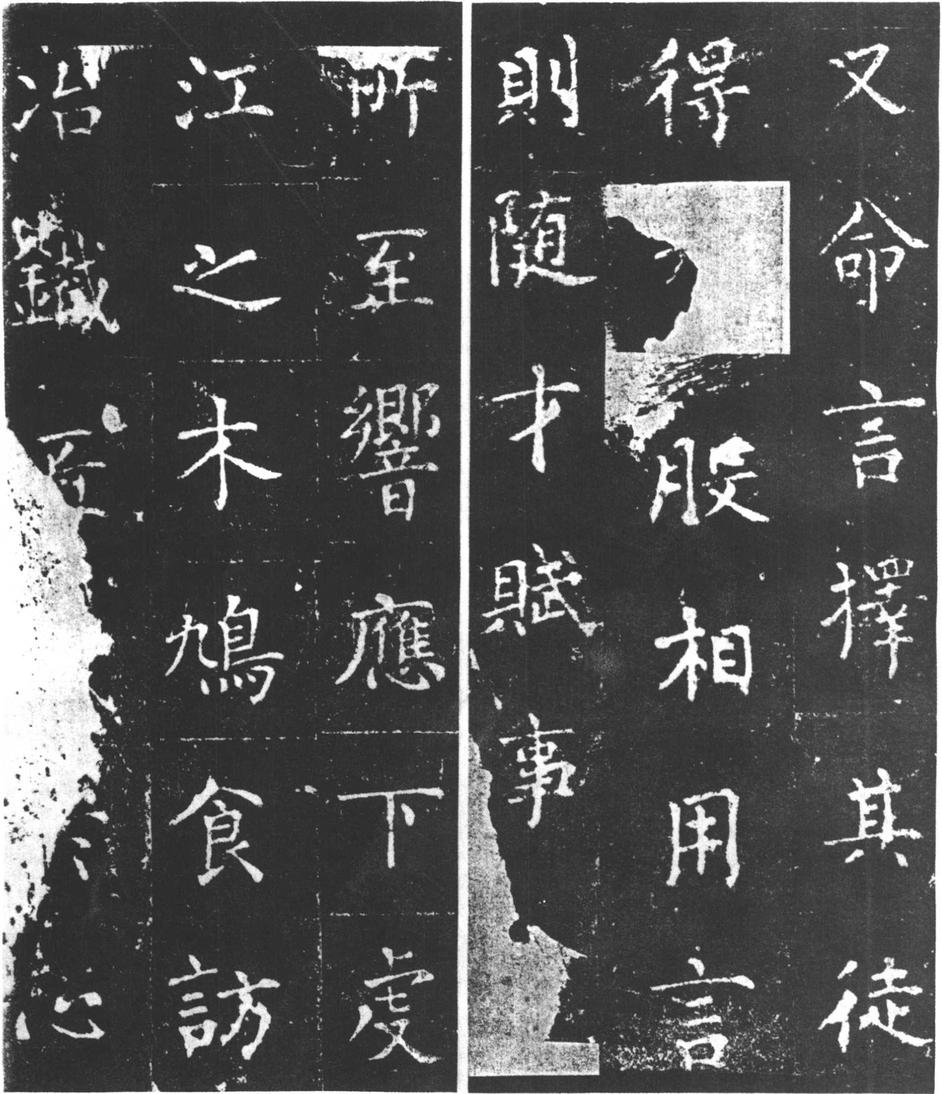 又命言擇其徒
得股相用言
則随才賦事
所至響應下虔
江之木鳩食訪
冶鐵心